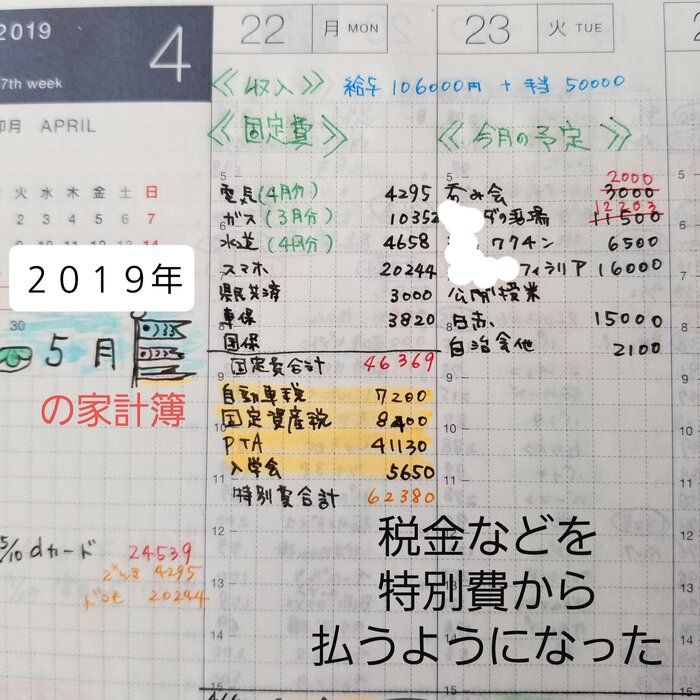 2019
4
7th week
卯月 APRIL
火 水 木 金 土 日
2 3 4 5 6 7
30
２０１９年
5月
の家計簿
5/10 dカード 24539
でんき 4295
ドコモ 20244
22 月 MON
23 火 TUE
《収入》 給与 106000円 + 手当 50000
《固定費》
電気(4月分) 4295
ガス(3月分) 10352
水道(4月分) 4658
スマホ 20244
県民共済 3000
車保 3820
国保
固定費合計 46369
自動車税 7200
固定資産税 8400
PTA 41130
入学会 5650
特別費合計 62380
《今月の予定》
2000
呑み会 3000
12203
ダの酒場 11500
ワクチン 6500
フィラリア 16000
公開授業
日赤 15000
自治会他 2100
税金などを
特別費から
払うようになった